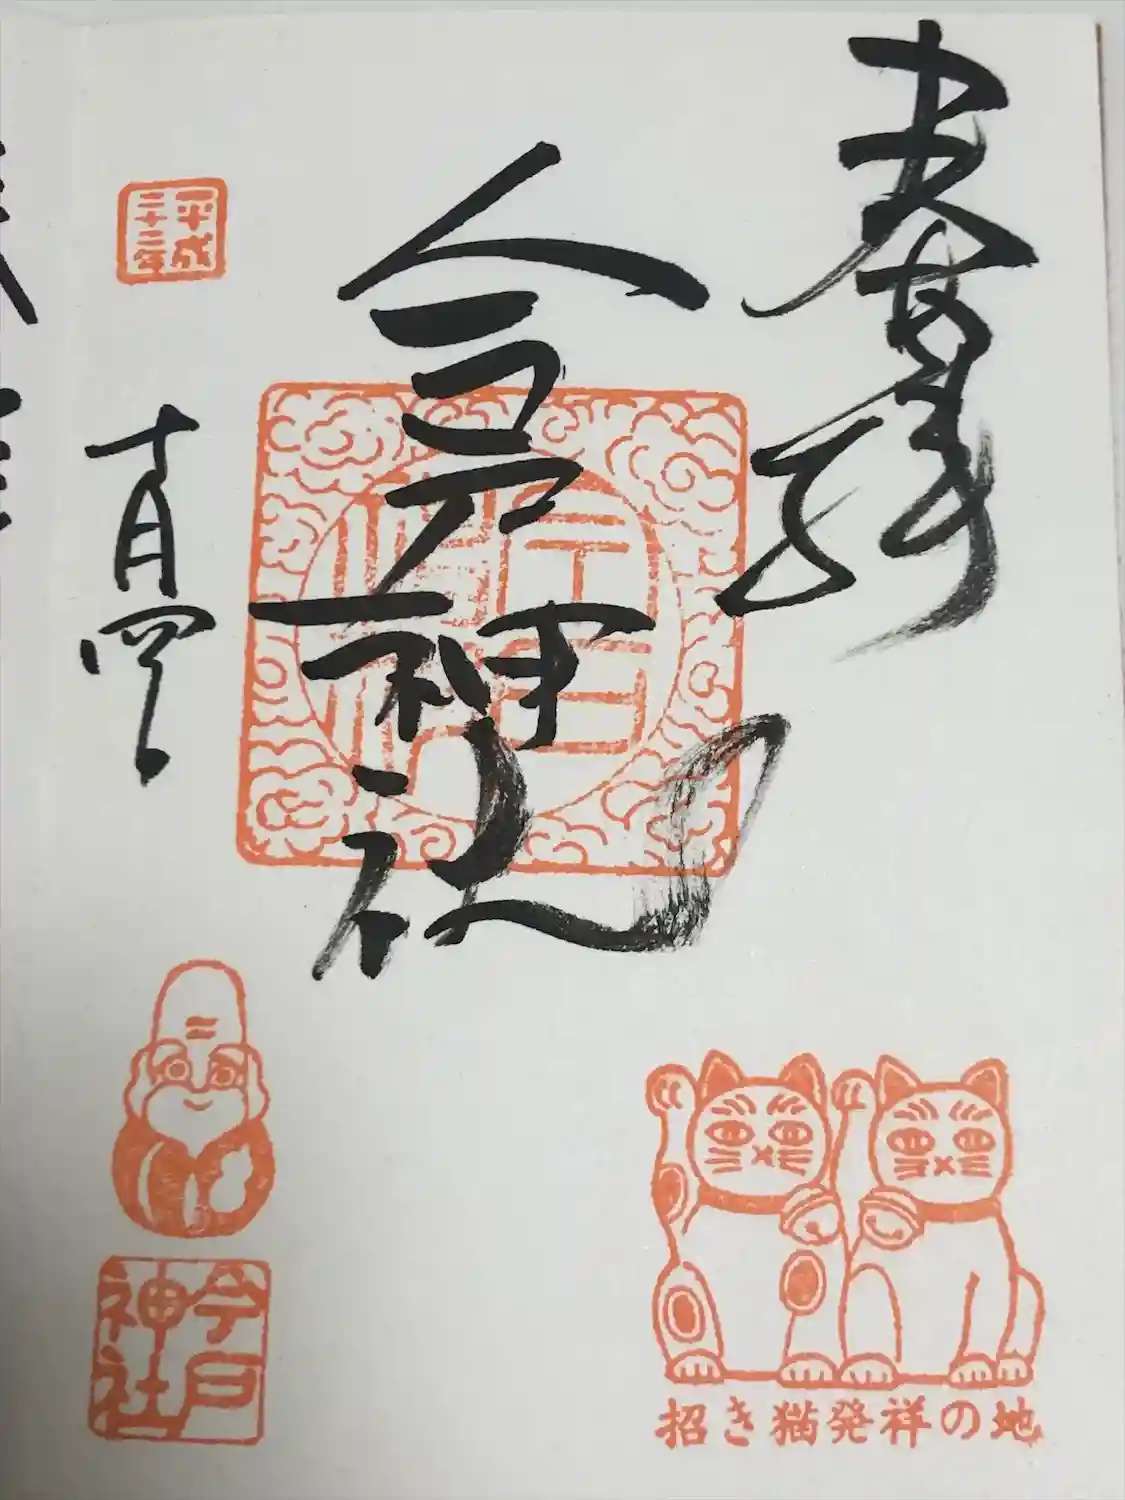 奉拝
今戸神社
平成
二十二年
十月四日
今戸
神社
招き猫発祥の地